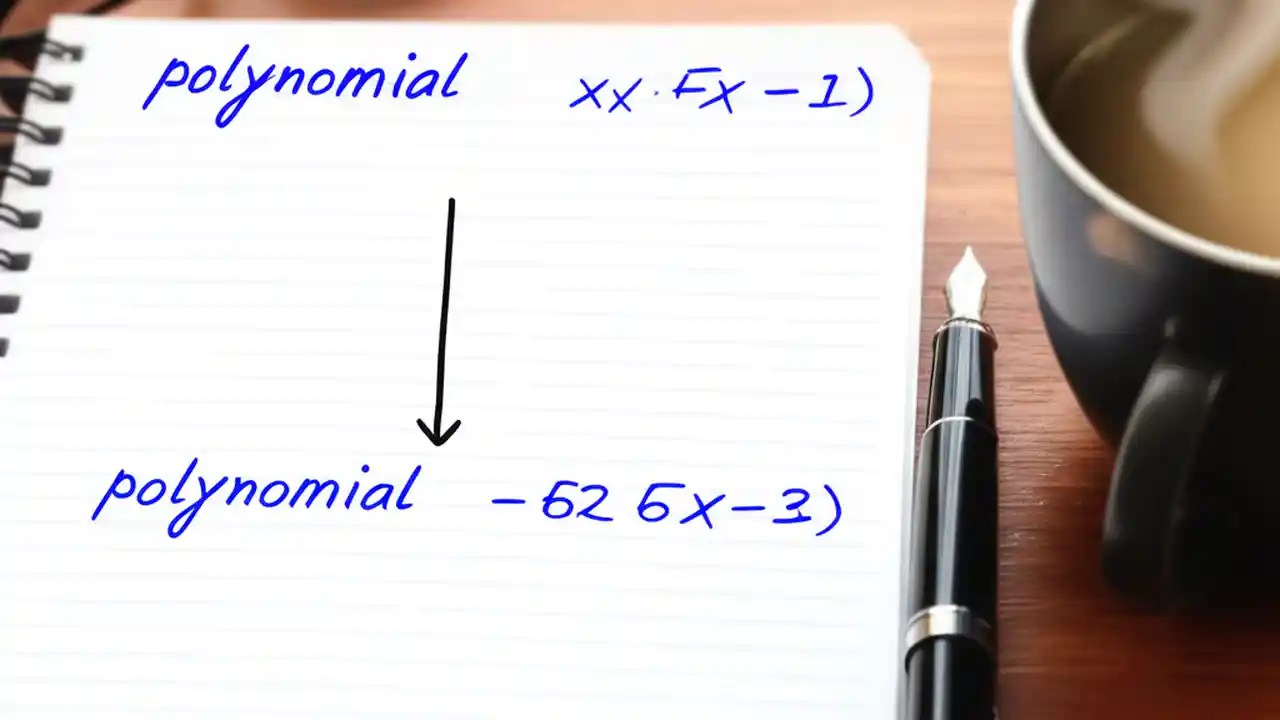 polynomial xx · Fx – 1)
polynomial – 62 6x – 3)